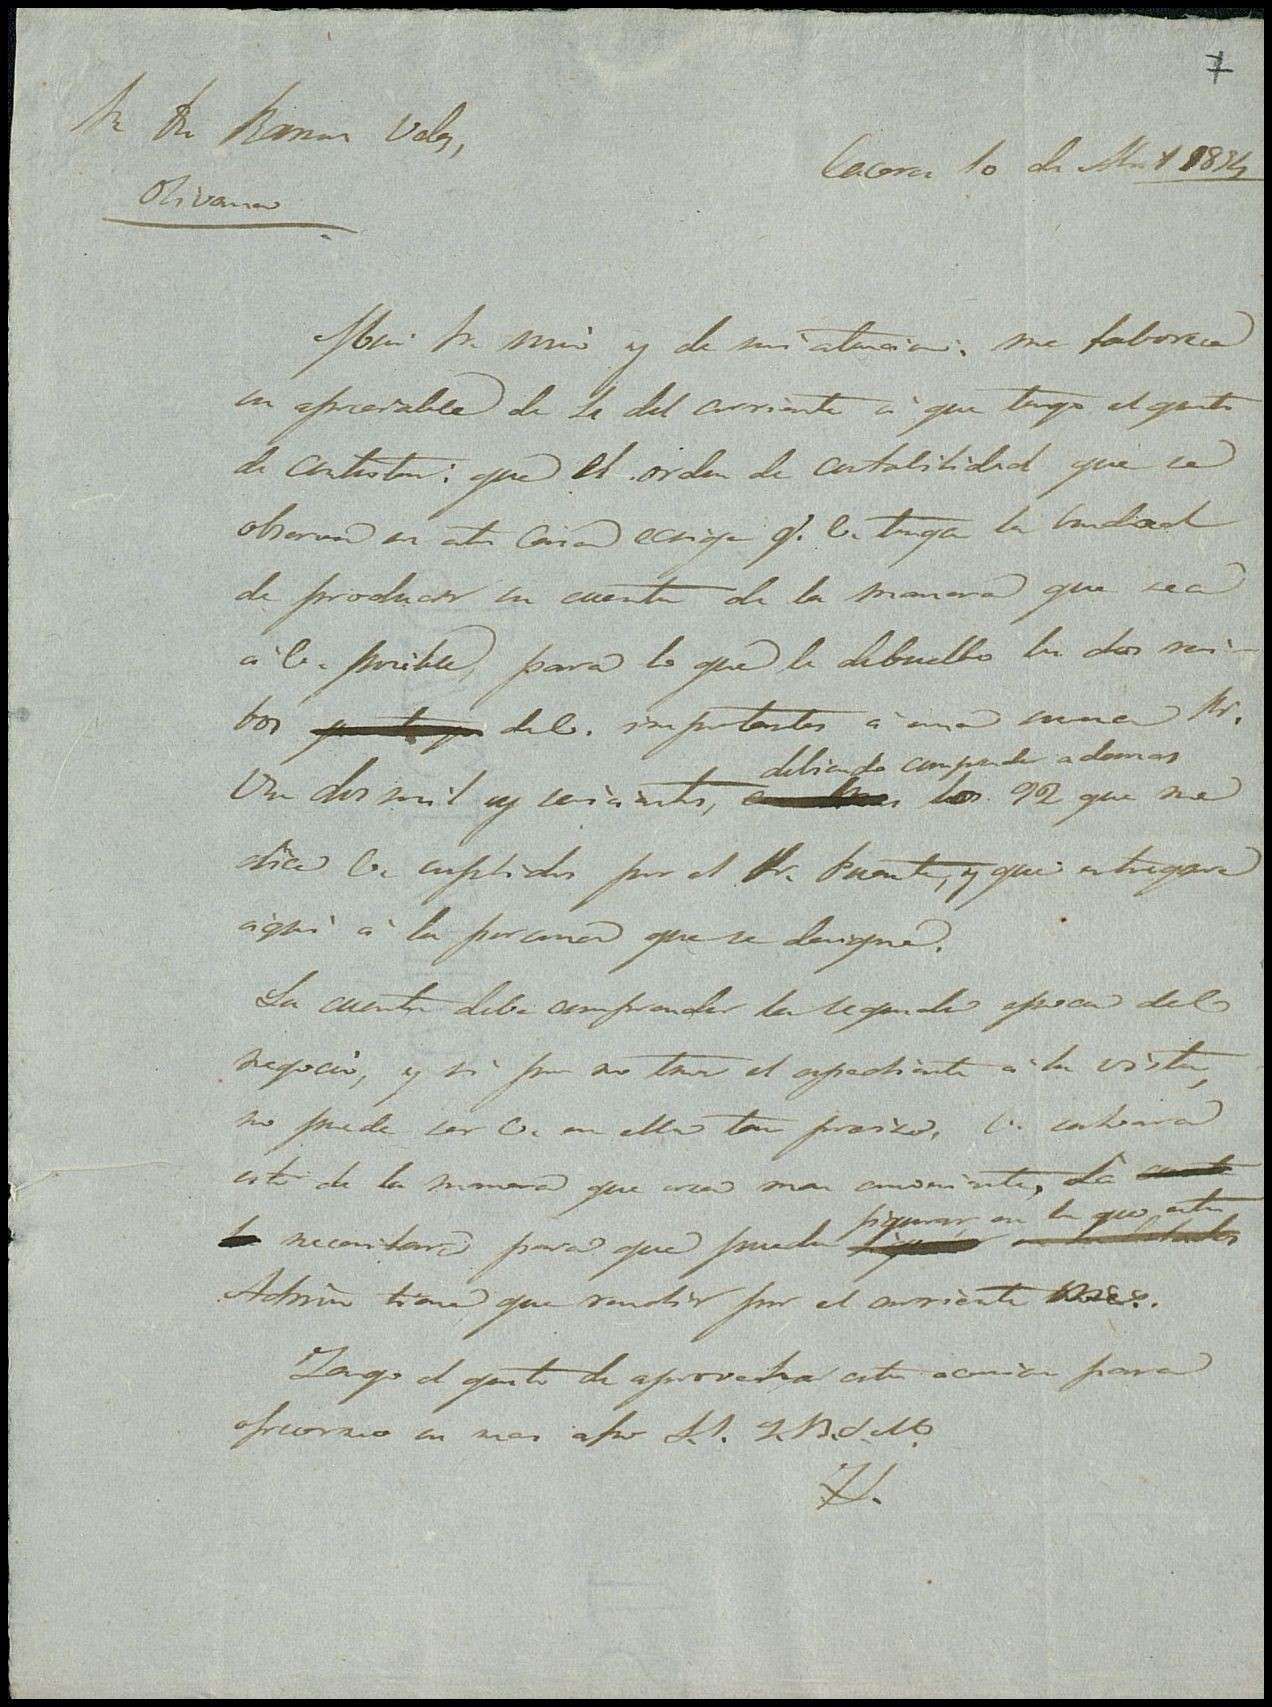 7
Sr. Dn. Ramon Vales,
Olivenza
Caceres 10 de 1854
Mui Sr. mio y de mi atencion: me faborece
su apreciable de 4 del corriente á que tengo el gusto
de contestar: que el orden de contabilidad que se
observa en esta Casa exige q.e V. tenga la bondad
de producir su cuenta de la manera que sea
á V. posible, para lo que le debuelbo los dos reci-
bos de V. importantes á una suma Rs.
Vn dos mil y seiscientos, debiendo comprender ademas los 92 que me
dice V. suplidos por el Sr. Puente, y que entregare
aqui á la persona que se designe.
La cuenta debe comprender la segunda epoca del
negocio, y si por no tener el espediente á la vista,
no puede ser V. en ella tan preciso, V. salvará
esto de la manera que crea mas conveniente. La
necesitare para que pueda figurar en la que esta
Admon tiene que rendir por el corriente mes.
Tengo el gusto de aprovechar esta ocasion para
ofrecerme su mas afmo S.S. Q.B.S.M.